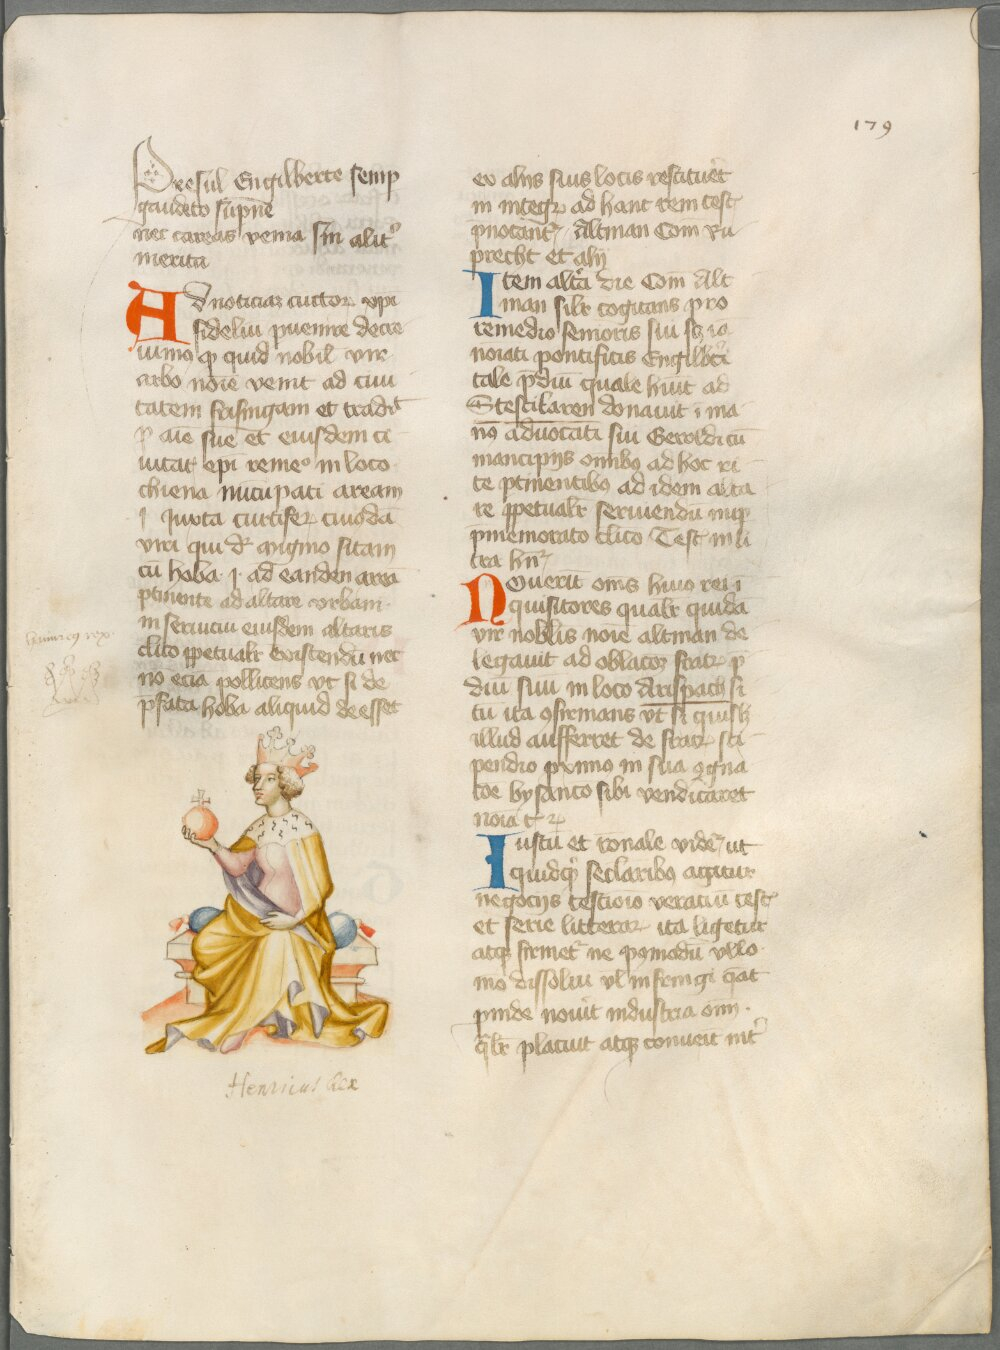 179
Presul Engilberte semp
gaudeto supne
nec careas venia sin alit
merita
Ad noticia cuctor xpi
fideliu puenire decre
uimus qd quid nobil vir
arbo noie venit ad ciui
tatem frisingam et tradit
p aie sue et eiusdem ci
uitat epi reme in loco
chiena nucupati aream
i iuxta curtifer cuiusda
viri qui dr sitam
cu hoba i ad eandem area
ptinente ad altare
in seruiciu eiusdem altaris
clico ppetualr existendu nec
no ecia pollicens ut si de
pfata hoba aliquid deesset
heinricus rex
Henricus Rex
ex alijs suis locis restituet
in integr ad hanc rem test
pnotant Altman Com Ru
precht et alij
Item alta die Com Alt
man silr cogitans pro
remedio senioris sui
noiati pontificis Engilbti
tale pdiu quale huit ad
Stescikaren donauit i ma
nu aduocati sui Geroldi cu
mancipijs omibus ad hoc ri
te ptinentibus ad idem alta
re ppetualr seruiendu
pmemorato clico Test in li
tra hnr
Nouerit oms huius rei i
quisitores qualr quida
vir nobilis noie altman de
legauit ad oblacoz fratr p
diu suu in loco Arispach si
tu ita ofirmans ut si quis
illud aufferret de fratr sti
pendio pximus in sua ogna
coe bysanto sibi vendicaret
noia t
Iustu et ronale videt ut
quidquid seclaribus agitur
negocijs testioio veraciu test
et serie litterar ita ligetur
atque firmet ne postmodu vllo
mo dissolui vl infringi qat
pinde nouit industria omi
qlr placuit atque conueit int